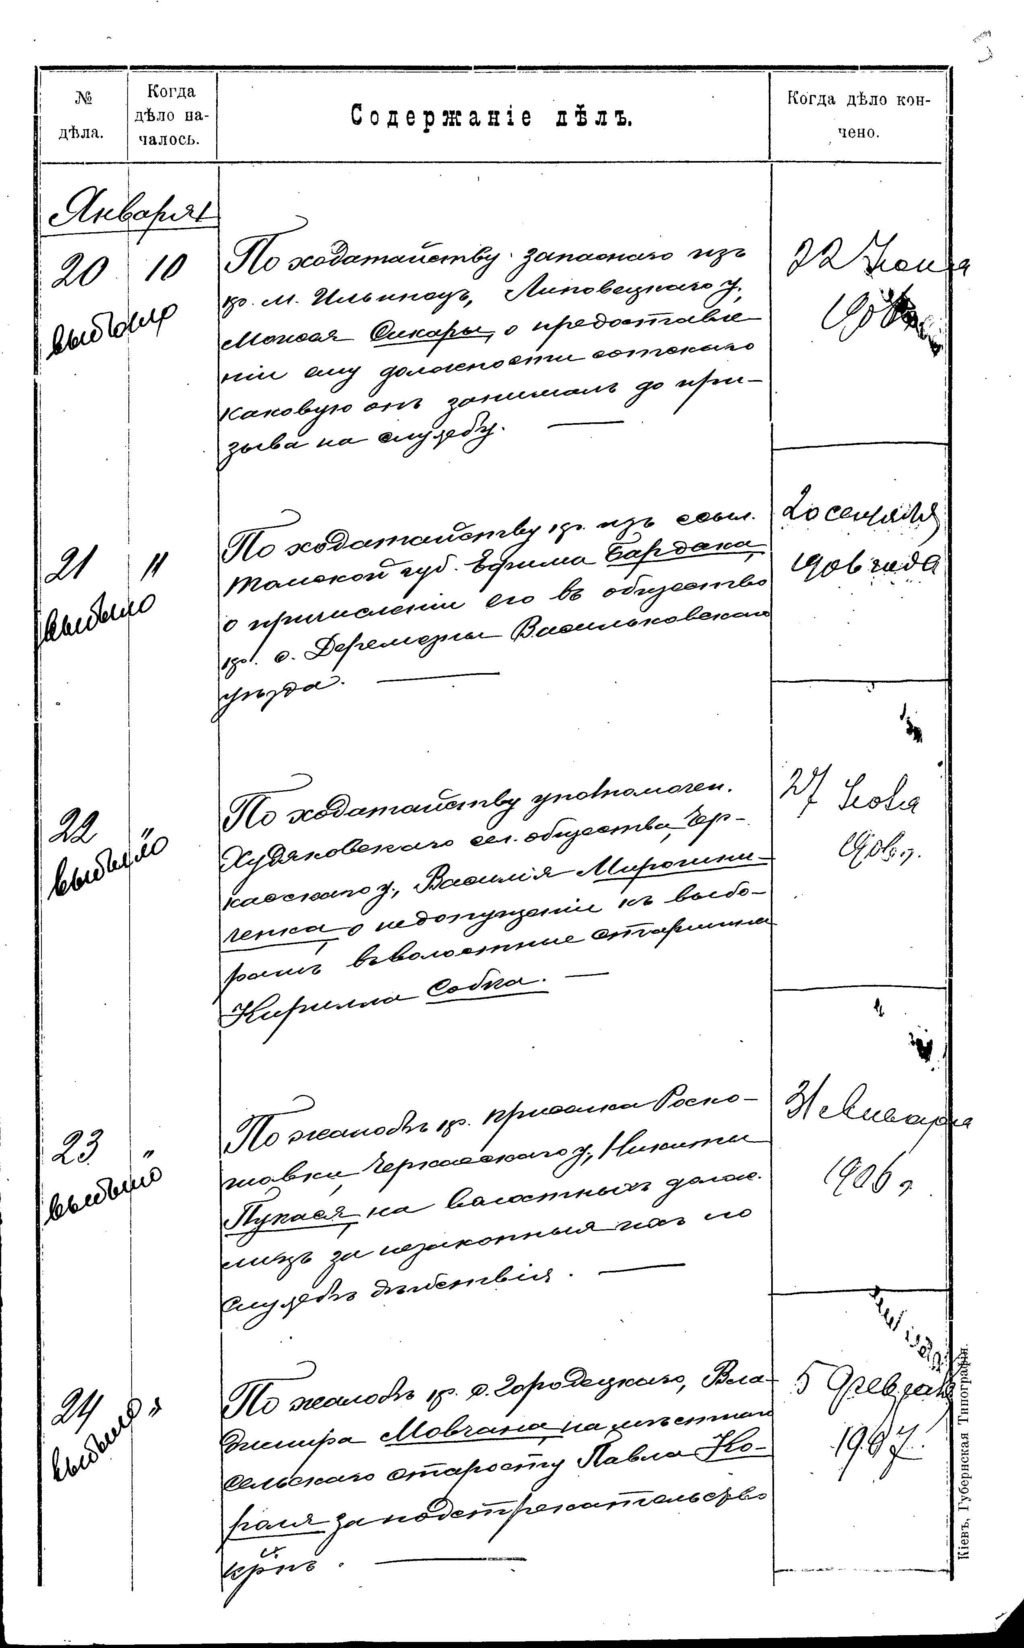 № дѣла.
Когда дѣло началось.
Содержаніе дѣлъ.
Когда дѣло кончено.
Января
20 10
выбыло
По ходатайству запаснаго изъ
кр. м. Ильинецъ, Липовецкаго у.,
Мойсея Сикоры, о предоставле-
ніи ему должности сотскаго
каковую онъ занималъ до при-
зыва на службу.
22 Іюня
190
21 "
выбыло
По ходатайству кр. изъ ссыл.
Томской губ. Ефима Бардака,
о причисленіи его въ общество
кр. с. Деремезны Васильковскаго
уѣзда.
20 сентября
1906 года
22 "
выбыло
По ходатайству уполномочен.
Худяковскаго сел. общества, Чер-
касскаго у., Василія Мирошни-
ченка о недопущеніи къ выбо-
рамъ въ волостные старшины
Кирилла Собка.
27 Іюля
1906 г.
23 "
выбыло
По жалобѣ кр. приселка Роско-
шовки, Черкасскаго у., Никиты
Пукася, на волостныхъ долж.
лицъ за незаконныя ихъ по
службѣ дѣйствія.
31 Января
1906 г.
24 "
выбыло
По жалобѣ кр. с. Городецкаго, Вла-
димира Мовчана, на мѣстнаго
сельскаго старосту Павла Ко-
роля за подстрекательство
кр-нъ.
5 Февраля
1907
Кіевъ, Губернская Типографія.